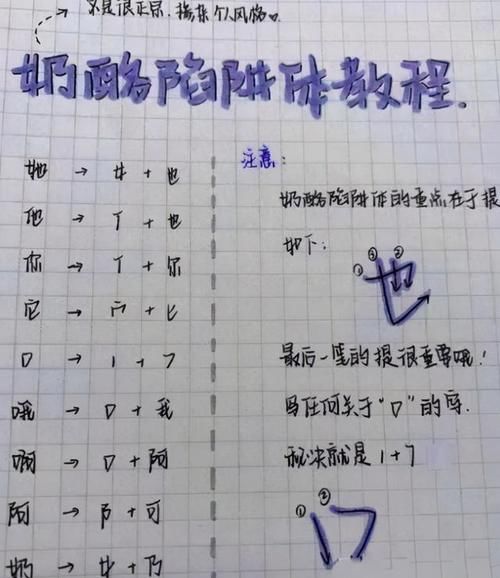 不是很正宗.掺杂个人风格。
奶酪陷阱体教程.
她 → 女 + 也
他 → 亻 + 也
你 → 亻 + 尔
它 → 宀 + 匕
口 → 1 + 7
哦 → 口 + 我
啊 → 口 + 阿
阿 → 阝 + 可
奶 → 女 + 乃
注意:
奶酪陷阱体的重点在于提
如下:
① ③ ②
也
最后一笔的提很重要哦!
写任何关于“口”的字.
秘决就是 1 + 7
① ②
口